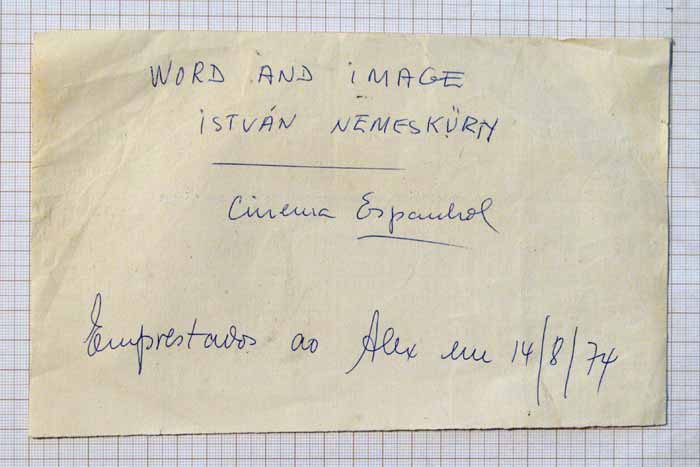 WORD AND IMAGE
ISTVÁN NEMESKÜRTY
Cinema Espanhol
Emprestados ao Alex em 14/8/74